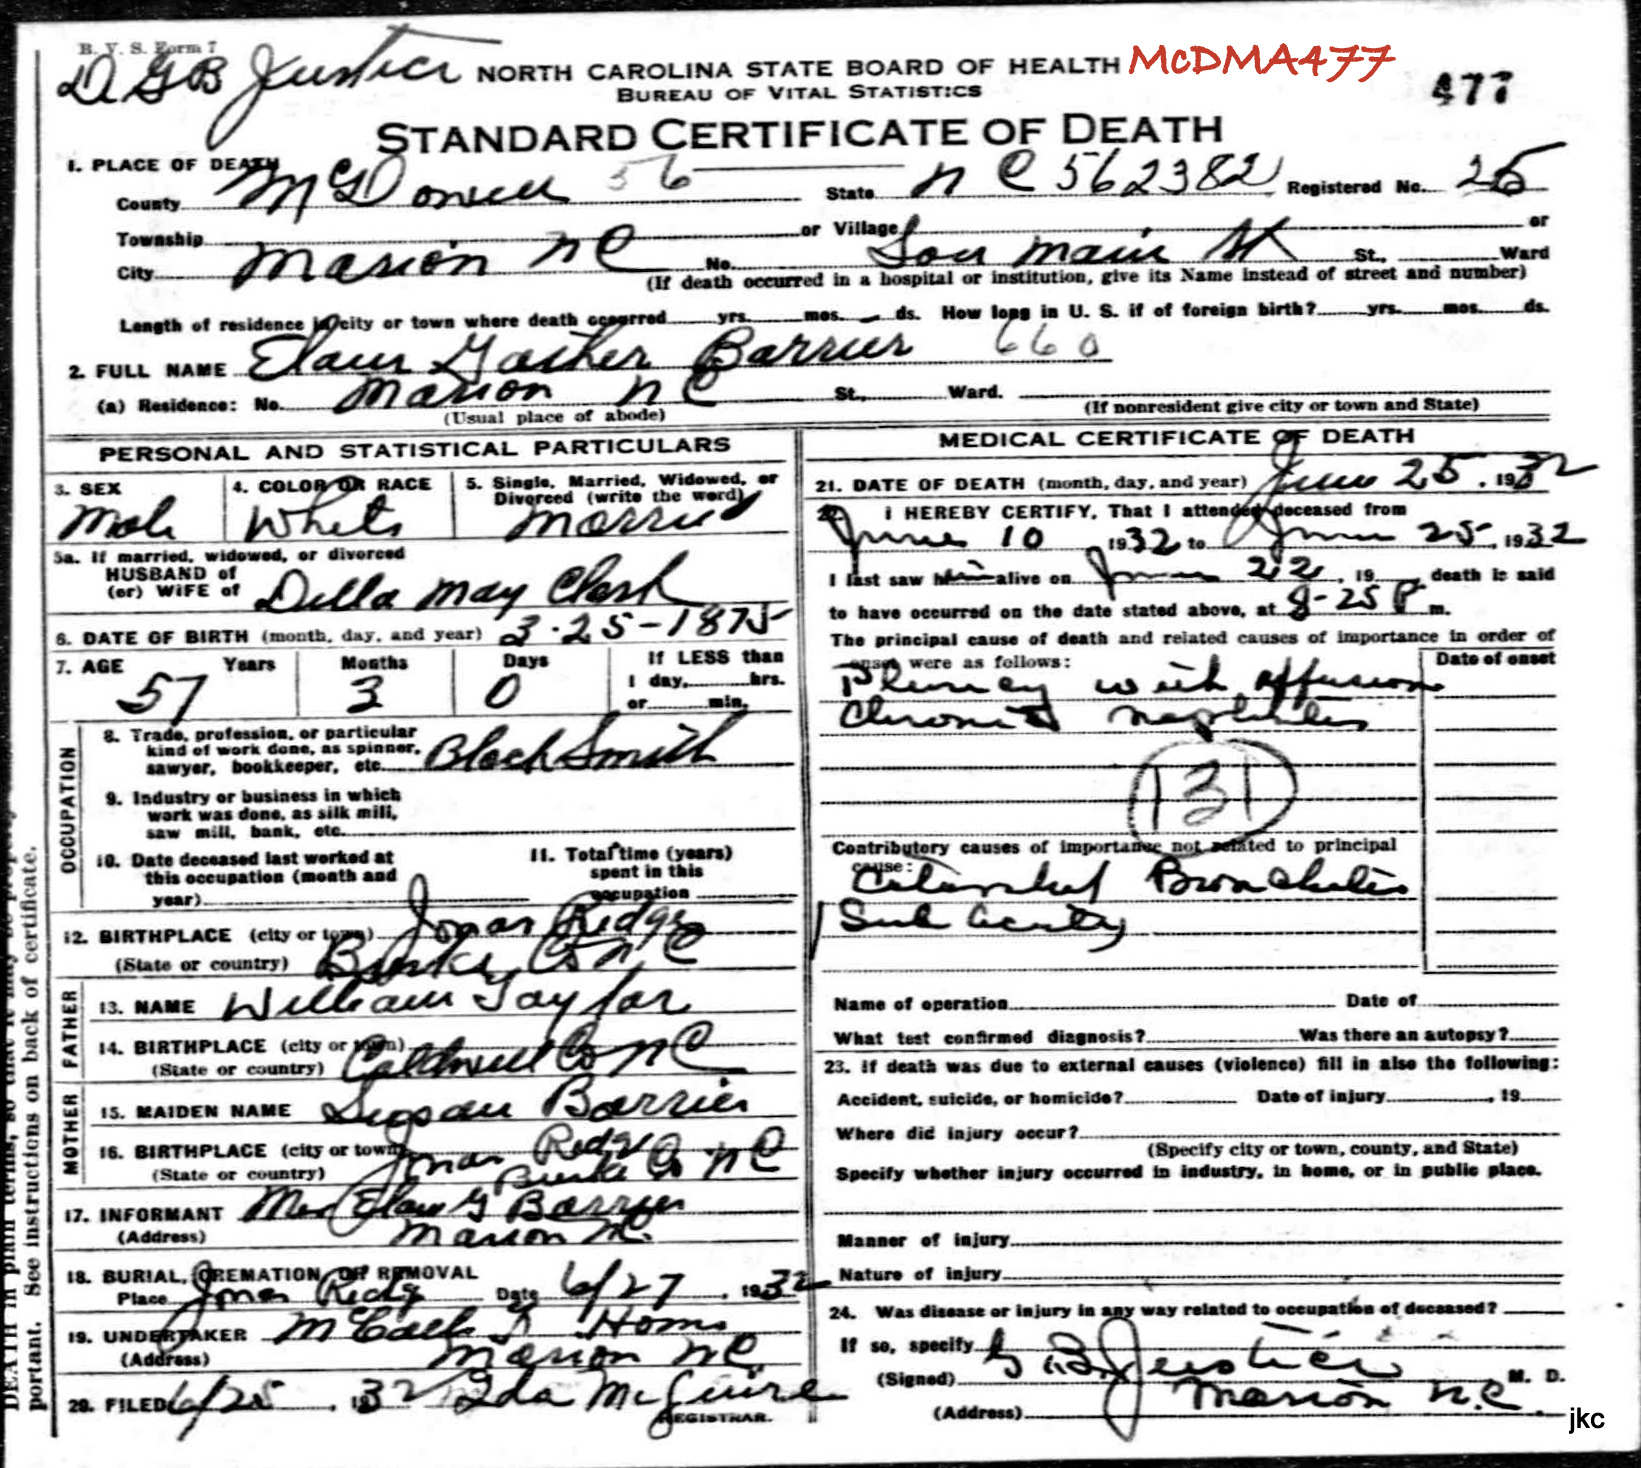 B. V. S. Form 7
Dr GB Justice NORTH CAROLINA STATE BOARD OF HEALTH McDMA477
BUREAU OF VITAL STATISTICS 477
STANDARD CERTIFICATE OF DEATH
1. PLACE OF DEATH
County McDowell 56 State N C 562382 Registered No. 25
Township or Village or
City Marion N C No. Sou Main St St., Ward
(If death occurred in a hospital or institution, give its Name instead of street and number)
Length of residence in city or town where death occurred yrs. mos. ds. How long in U. S. if of foreign birth? yrs. mos. ds.
2. FULL NAME Elam Gaither Barrier 660
(a) Residence: No. Marion N C St., Ward.
(Usual place of abode) (If nonresident give city or town and State)
PERSONAL AND STATISTICAL PARTICULARS
3. SEX 4. COLOR OR RACE 5. Single, Married, Widowed, or Divorced (write the word)
Male White Married
5a. If married, widowed, or divorced
HUSBAND of
(or) WIFE of Della May Clark
6. DATE OF BIRTH (month, day, and year) 3-25-1875
7. AGE Years Months Days If LESS than
57 3 0 1 day, hrs.
or min.
OCCUPATION
8. Trade, profession, or particular
kind of work done, as spinner,
sawyer, bookkeeper, etc. Black Smith
9. Industry or business in which
work was done, as silk mill,
saw mill, bank, etc.
10. Date deceased last worked at
this occupation (month and
year)
11. Total time (years)
spent in this
occupation
12. BIRTHPLACE (city or town) Jonas Ridge
(State or country) Burke Co N C
FATHER
13. NAME William Taylor
14. BIRTHPLACE (city or town)
(State or country) Caldwell Co N C
MOTHER
15. MAIDEN NAME Susan Barrier
16. BIRTHPLACE (city or town) Jonas Ridge
(State or country) Burke Co N C
17. INFORMANT Mrs Elam G Barrier
(Address) Marion N C
18. BURIAL, CREMATION OR REMOVAL
Place Jonas Ridg Date 6/27, 1932
19. UNDERTAKER McCall F Home
(Address) Marion N C
20. FILED 6/25, 1932 Ida McGuire
REGISTRAR.
MEDICAL CERTIFICATE OF DEATH
21. DATE OF DEATH (month, day, and year) June 25, 1932
22. I HEREBY CERTIFY, That I attended deceased from
June 10 1932 to June 25, 1932
I last saw him alive on June 22, 19 death is said
to have occurred on the date stated above, at 8-25 P m.
The principal cause of death and related causes of importance in order of
onset were as follows: Date of onset
Pleurcy with effusion
Chronic nephritis
131
Contributory causes of importance not related to principal
cause:
Bronchitis
Sub
Name of operation Date of
What test confirmed diagnosis? Was there an autopsy?
23. If death was due to external causes (violence) fill in also the following:
Accident, suicide, or homicide? Date of injury , 19
Where did injury occur?
(Specify city or town, county, and State)
Specify whether injury occurred in industry, in home, or in public place.
Manner of injury
Nature of injury
24. Was disease or injury in any way related to occupation of deceased?
If so, specify
(Signed) G. B. Justice M. D.
(Address) Marion N.C.
DEATH in plain terms, so that it may be
portant. See instructions on back of certificate.
jkc